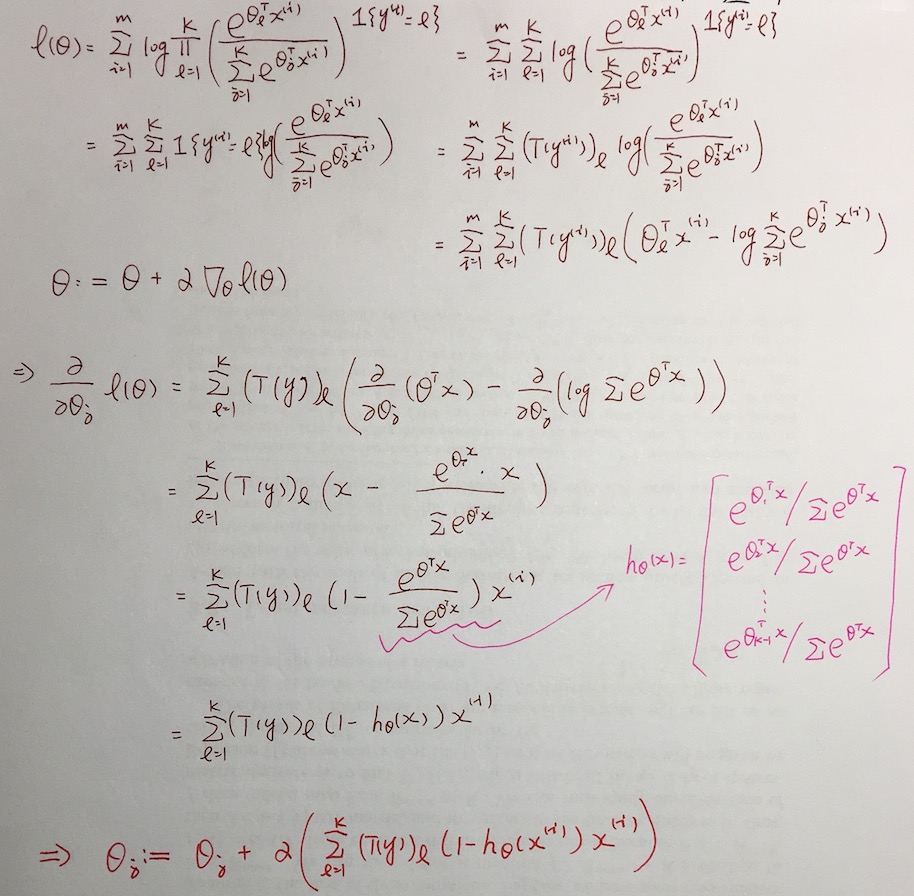 ℓ(θ) = Σ_{i=1}^{m} log Π_{ℓ=1}^{K} ( e^{θ_ℓ^T x^{(i)}} / Σ_{j=1}^{K} e^{θ_j^T x^{(i)}} )^{1{y^{(i)}=ℓ}} = Σ_{i=1}^{m} Σ_{ℓ=1}^{K} log ( e^{θ_ℓ^T x^{(i)}} / Σ_{j=1}^{K} e^{θ_j^T x^{(i)}} )^{1{y^{(i)}=ℓ}}
= Σ_{i=1}^{m} Σ_{ℓ=1}^{K} 1{y^{(i)}=ℓ} log ( e^{θ_ℓ^T x^{(i)}} / Σ_{j=1}^{K} e^{θ_j^T x^{(i)}} ) = Σ_{i=1}^{m} Σ_{ℓ=1}^{K} (T(y^{(i)}))_ℓ log ( e^{θ_ℓ^T x^{(i)}} / Σ_{j=1}^{K} e^{θ_j^T x^{(i)}} )
= Σ_{i=1}^{m} Σ_{ℓ=1}^{K} (T(y^{(i)}))_ℓ ( θ_ℓ^T x^{(i)} - log Σ_{j=1}^{K} e^{θ_j^T x^{(i)}} )
θ := θ + α ∇_θ ℓ(θ)
⇒ ∂/∂θ_j ℓ(θ) = Σ_{ℓ=1}^{K} (T(y))_ℓ ( ∂/∂θ_j (θ^T x) - ∂/∂θ_j (log Σ e^{θ^T x}) )
= Σ_{ℓ=1}^{K} (T(y))_ℓ ( x - e^{θ^T x} · x / Σ e^{θ^T x} )
= Σ_{ℓ=1}^{K} (T(y))_ℓ ( 1 - e^{θ^T x} / Σ e^{θ^T x} ) x^{(i)}
h_θ(x) = [ e^{θ_1^T x} / Σ e^{θ^T x}
e^{θ_2^T x} / Σ e^{θ^T x}
⋮
e^{θ_{K-1}^T x} / Σ e^{θ^T x} ]
= Σ_{ℓ=1}^{K} (T(y))_ℓ (1 - h_θ(x)) x^{(i)}
⇒ θ_j := θ_j + α ( Σ_{ℓ=1}^{K} (T(y))_ℓ (1 - h_θ(x^{(i)}) x^{(i)} )